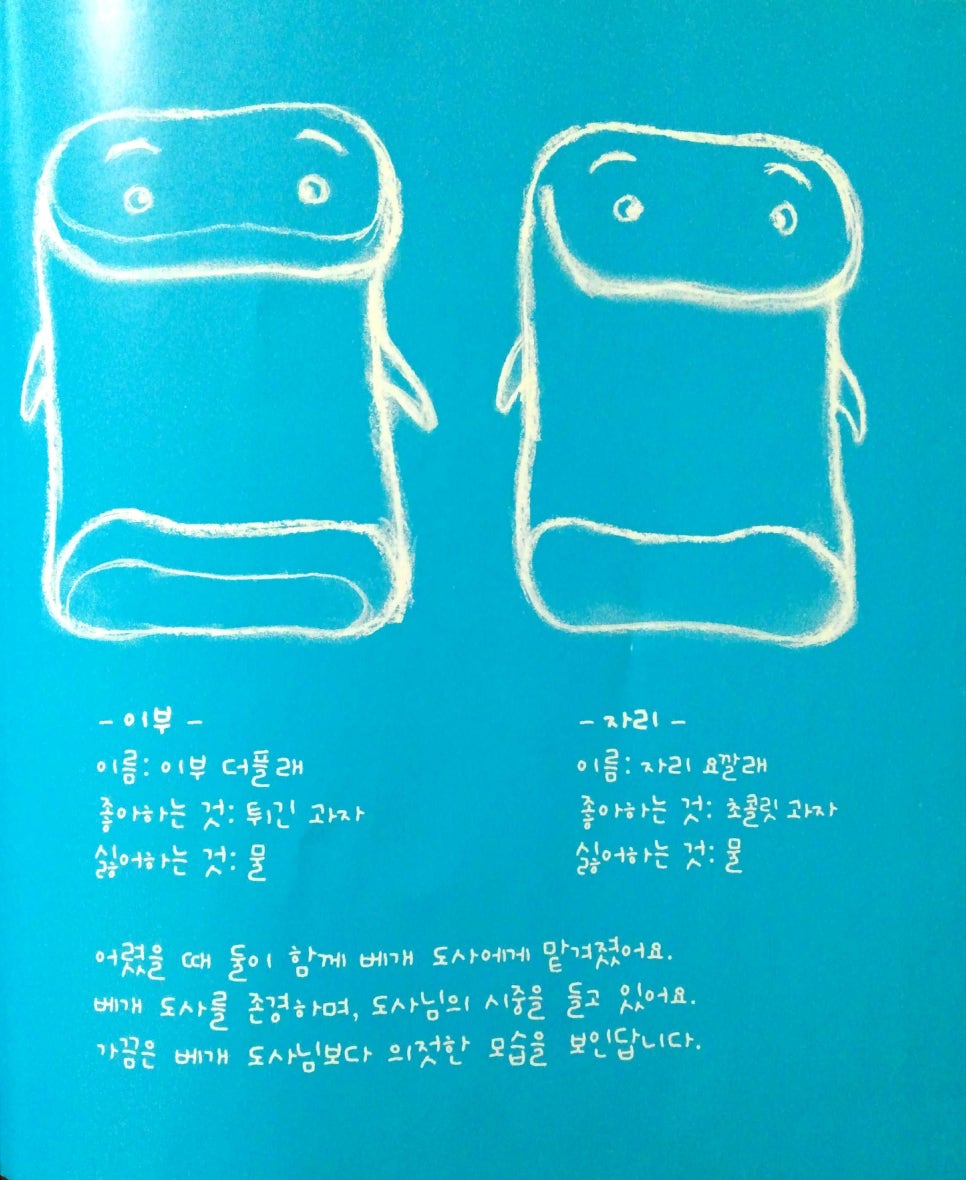 - 이부 -
이름: 이부 더플래
좋아하는 것: 튀긴 과자
싫어하는 것: 물
- 자리 -
이름: 자리 요깔래
좋아하는 것: 초콜릿 과자
싫어하는 것: 물
어렸을 때 둘이 함께 베개 도사에게 맡겨졌어요.
베개 도사를 존경하며, 도사님의 시중을 들고 있어요.
가끔은 베개 도사님보다 의젓한 모습을 보인답니다.